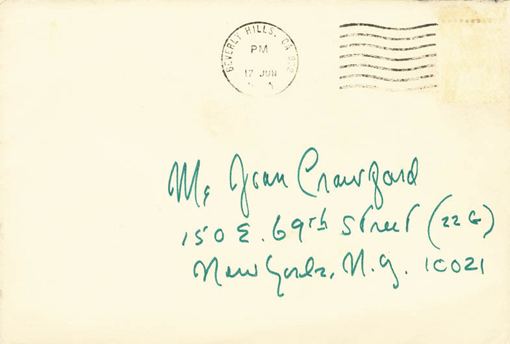 BEVERLY HILLS, CA
PM
17 JUN
Ms Joan Crawford
150 E. 69th Street (22 G)
New York, N.Y. 10021